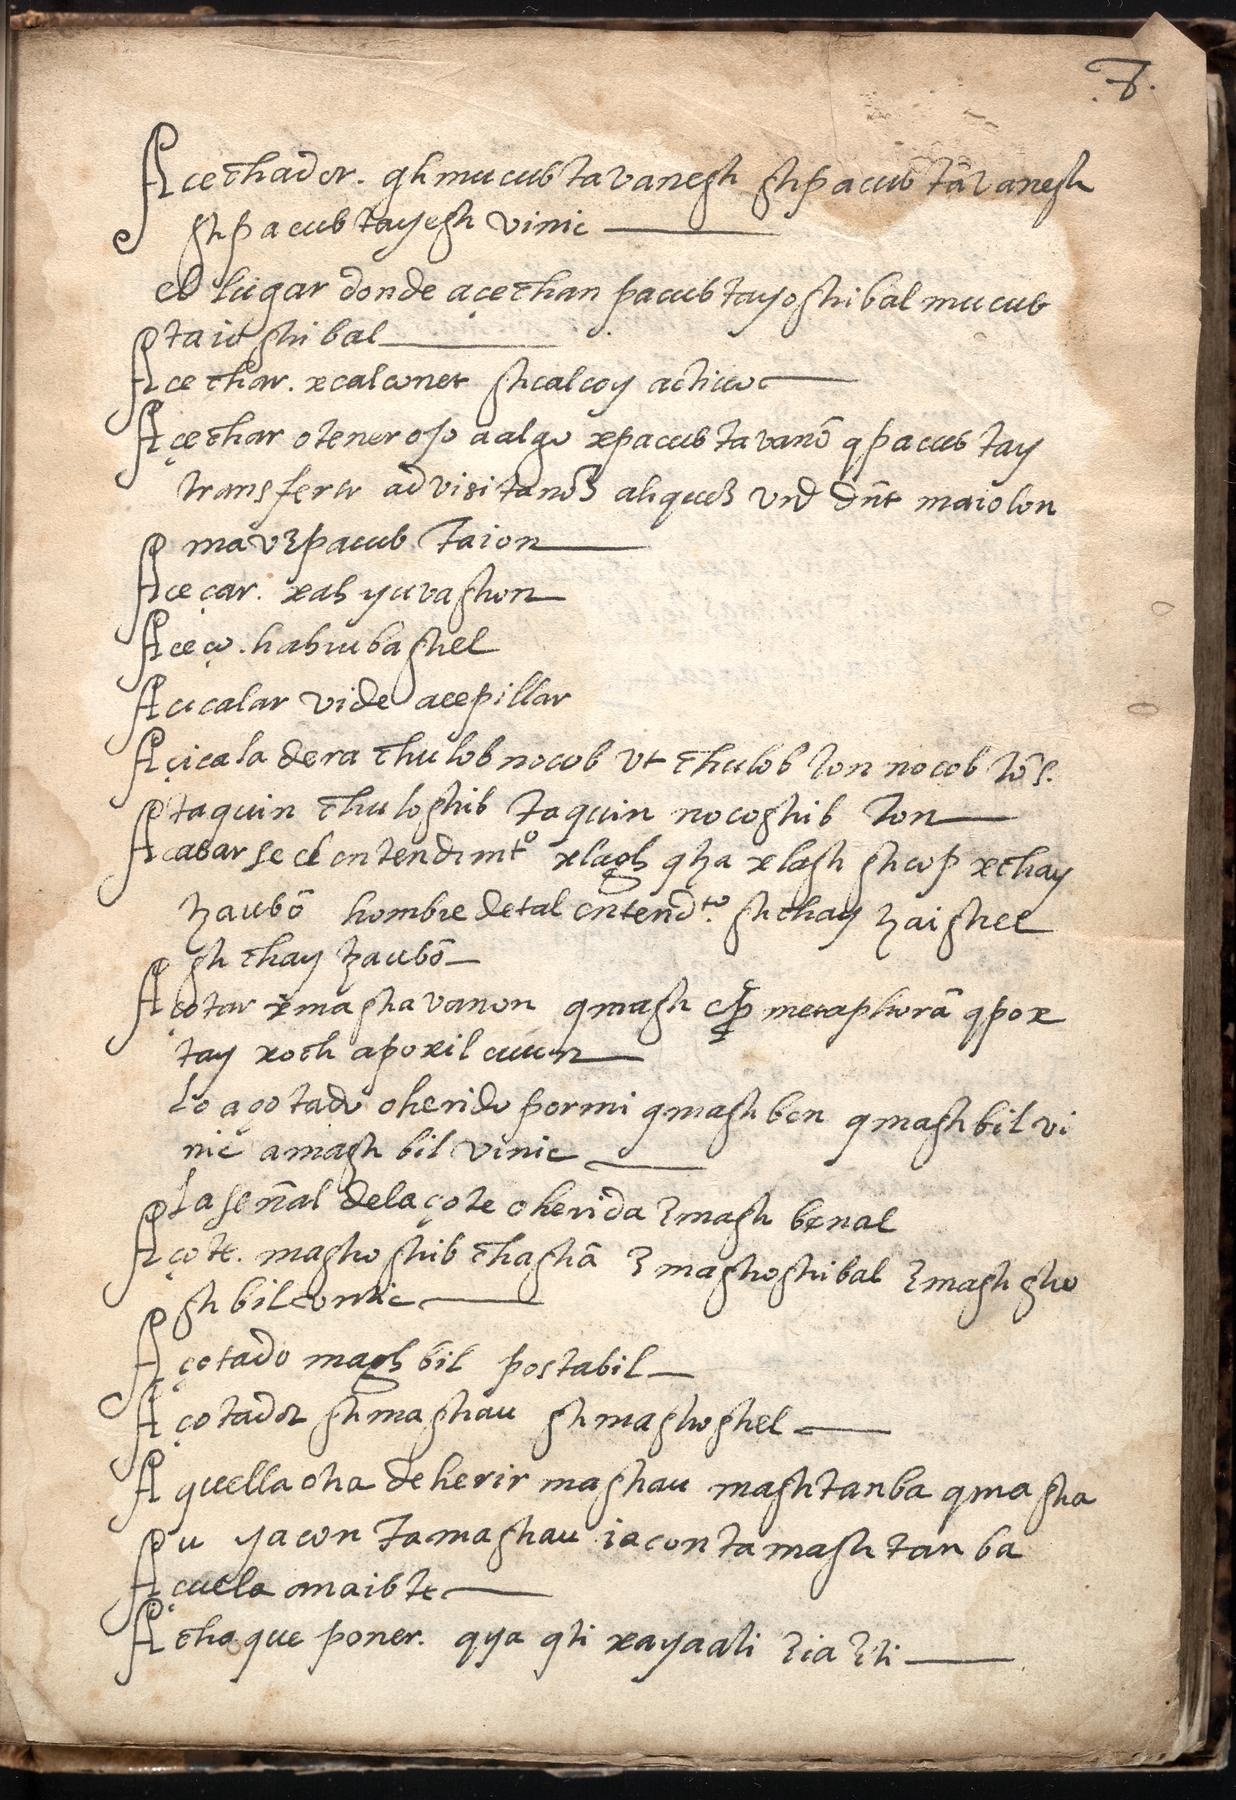 7.
Acechador. ghmucubtavanegh ghpacubtãvanegh
ghpacubtayegh vinic
el lugar donde açechan pacubtayoghibal mucub
taioghibal
Acechar. xcalconer ghcalcoy activo
Açechar o tener ojo a algo xpacubtavanõ qpacubtay
transfertr ad visitanõ aliquē vnd dñt maiolon
mavꜫpacub taion
Aceçar. xah yuvaghon
Aceço. habiubaghel
Acicalar vide acepillar
Açicaladera chulob nocob vt chulob ton nocob tõs.
taquin chuloghib taquin nocoghib ton
Acabarse el entendimto xlagh qha xlagh ghcop xchay
haubõ hombre de tal entendto. ghchay haighel
gh chay haubõ
Açotar xmaghavanon qmagh p metaphorã qpox
tay xoch apoxil cuun
Lo açotado o herido por mi qmaghben qmaghbil vi
nic amaghbil vinic
La señal del açote o herida ꜫmagh benal
Açote. maghoghib chaghã ꜫmaghoghibal ꜫmaghgho
ghbil
Açotado magh bil postabil
Açotador ghmaghau ghmaghoghel
Aquella oha de herir maghau maghtanba qmagha
u yacon tamaghau iacon tamagh tan ba
Açuela maibte
Achaque poner. qya qti xayaati ꜫia ꜫti